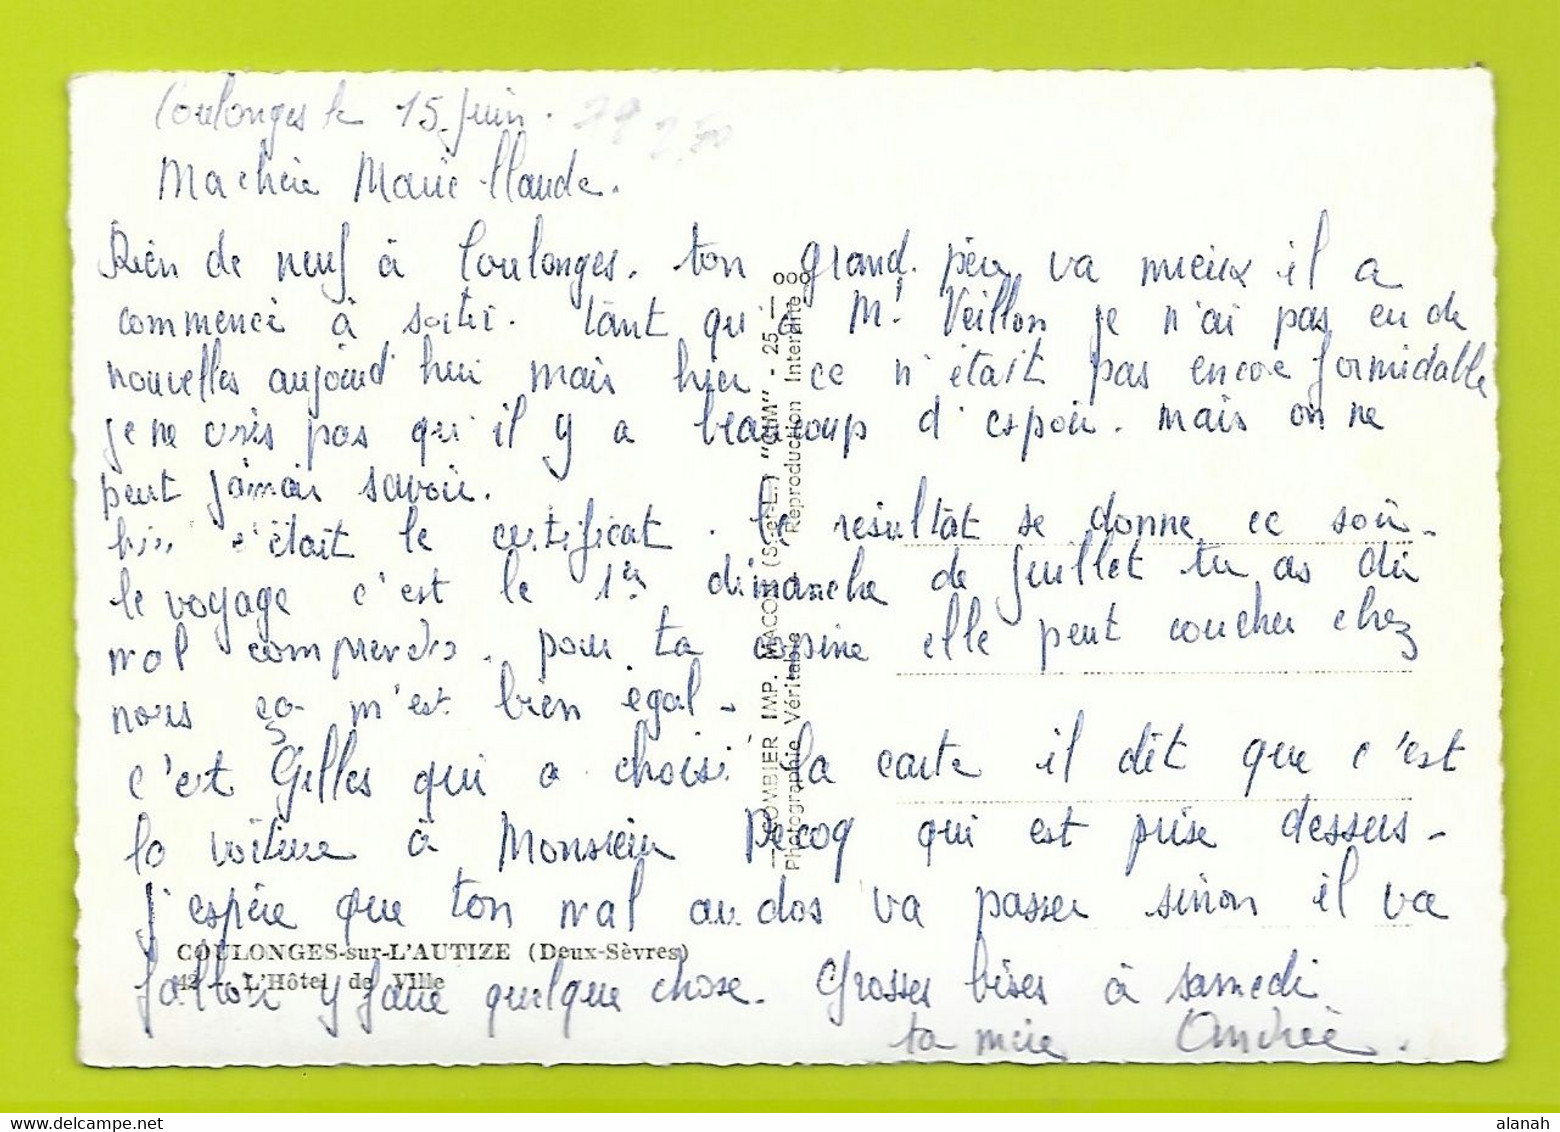 Coulonges le 15 Juin. 79 2,50
Ma chère Marie Claude.
Rien de neuf à Coulonges. ton grand. père va mieux il a
commencé à sortir. tant qu'à Mr Veillon je n'ai pas eu de
nouvelles aujourd'hui mais hier ce n'était pas encore formidable
je ne crois pas qu'il y a beaucoup d'espoir. mais on ne
peut jamais savoir.
hier c'était le certificat. le résultat se donne ce soir.
le voyage c'est le 1er dimanche de Juillet tu as dû
mal comprendre. pour ta copine elle peut coucher chez
nous ça m'est bien égal -
c'est Gilles qui a choisi la carte il dit que c'est
la voiture à Monsieur Pecoq qui est prise dessus -
J'espère que ton mal au dos va passer sinon il va
falloir y faire quelque chose. Grosses bises à samedi
ta mère Andrée.
COULONGES-sur-L'AUTIZE (Deux-Sèvres)
42 - L'Hôtel de Ville
COMBIER IMP. MACON (S.-et-L.) "CIM" - 25 -
Photographie Véritable Reproduction Interdite
alanah